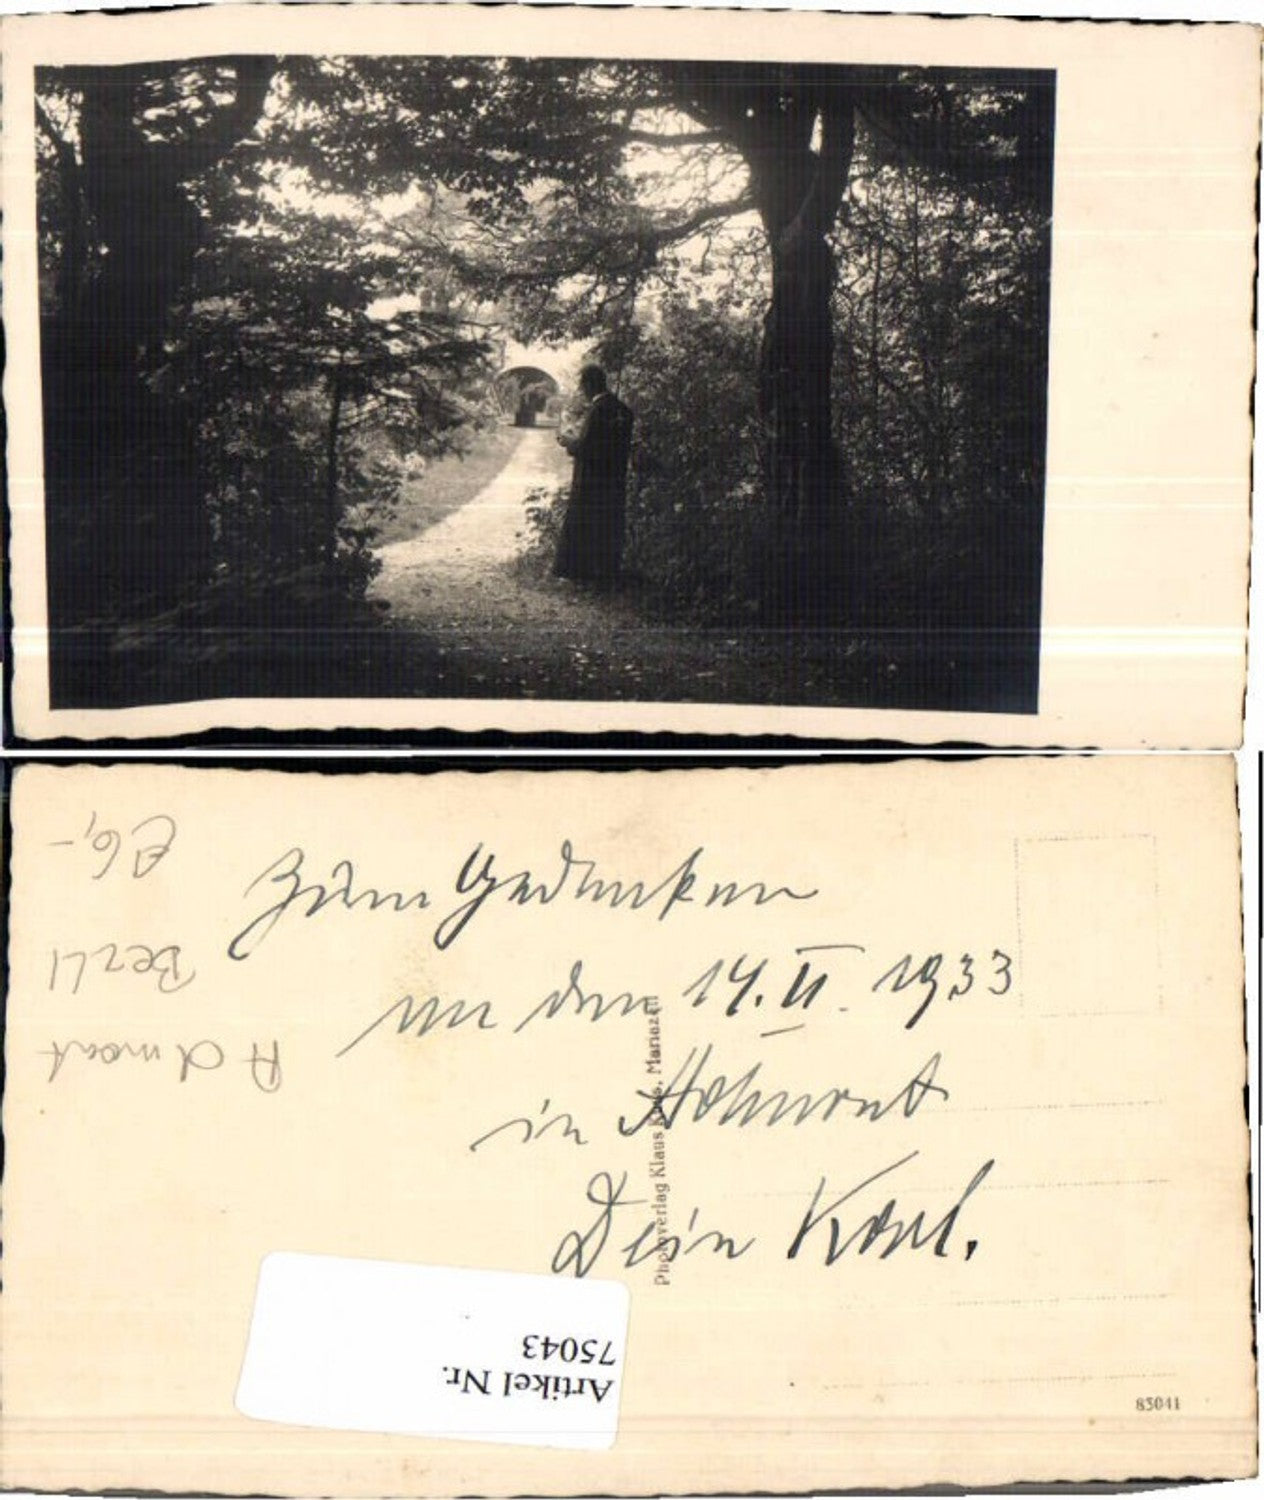 €6,-
Bez Li
Admont
Zum Gedenken
an den 14. II. 1933
in Admont
Dein Karl.
Photoverlag Klaus Mariazell
Artikel Nr.
75043
83041